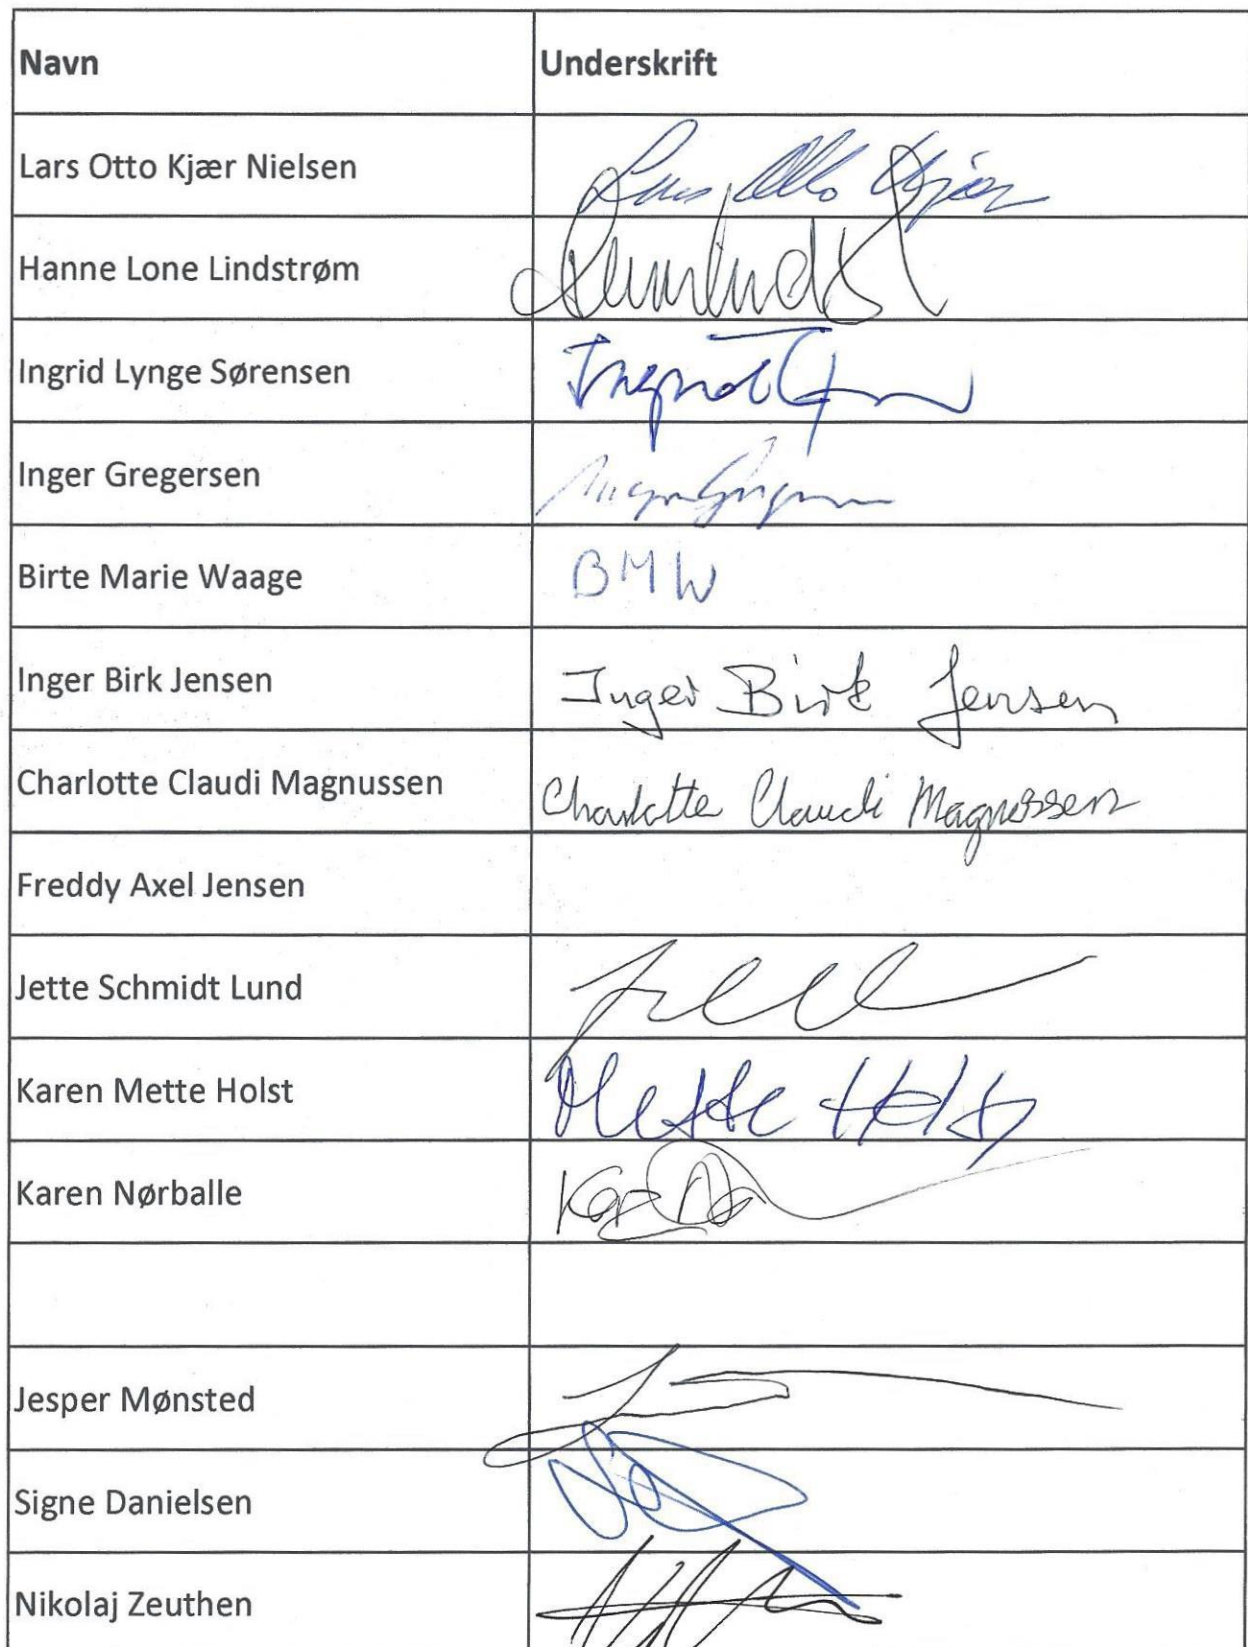 Navn Underskrift
Lars Otto Kjær Nielsen Lars Otto Kjær
Hanne Lone Lindstrøm
Ingrid Lynge Sørensen Ingrid
Inger Gregersen Inger Gregersen
Birte Marie Waage BMW
Inger Birk Jensen Inger Birk Jensen
Charlotte Claudi Magnussen Charlotte Claudi Magnussen
Freddy Axel Jensen
Jette Schmidt Lund
Karen Mette Holst Mette Holst
Karen Nørballe
Jesper Mønsted
Signe Danielsen
Nikolaj Zeuthen